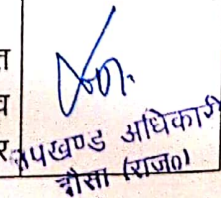 त
व
र
उपखण्ड अधिकारी
दौसा (राज०)